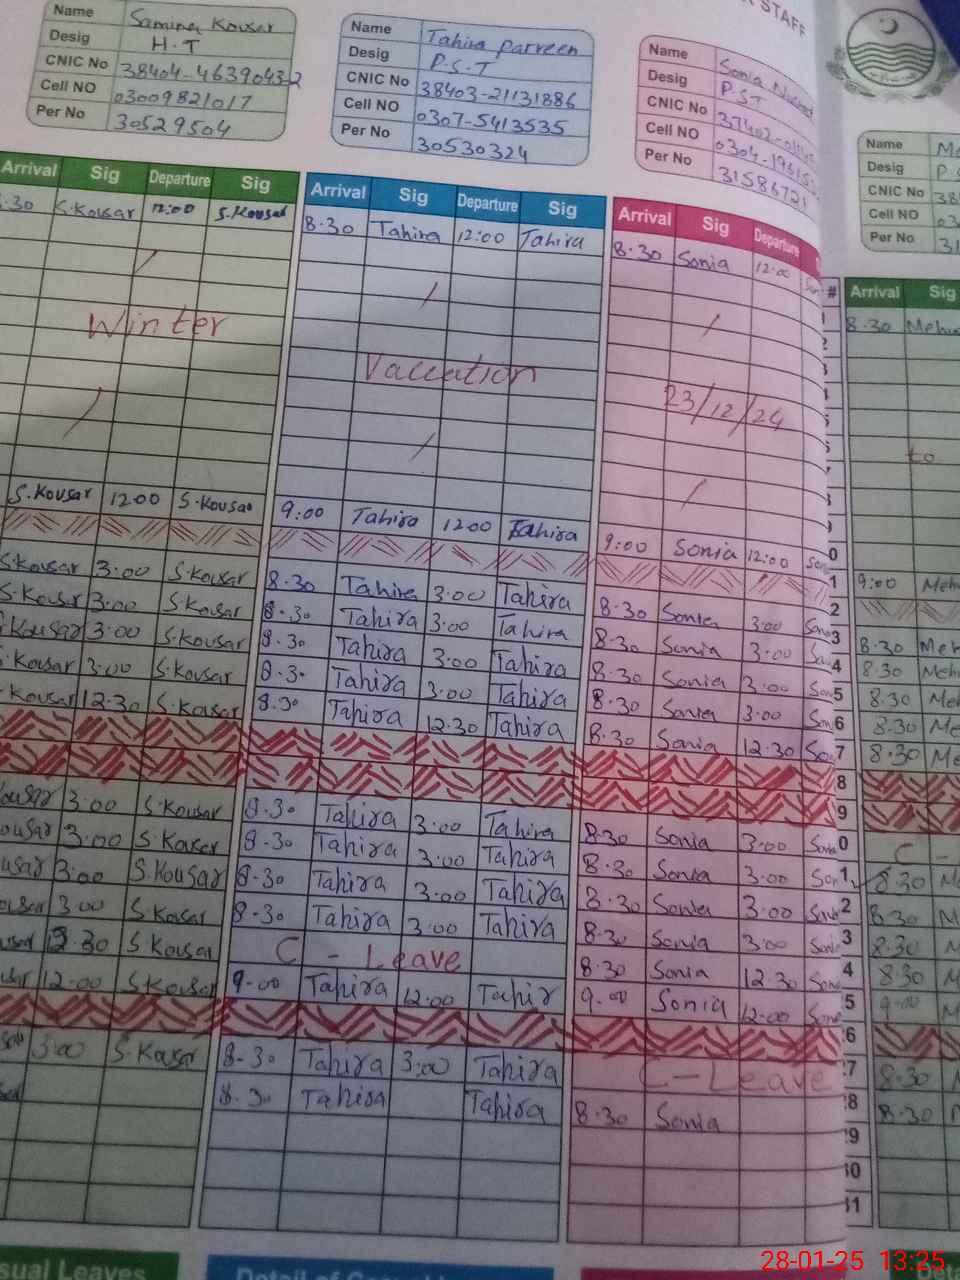 STAFF
Name Samina Kousar
Desig H.T
CNIC No 38404-4639043-2
Cell NO 03009821017
Per No 30529504
Name Tahira Parveen
Desig P.S.T
CNIC No 38403-21131886
Cell NO 0307-5413535
Per No 30530324
Name Sonia
Desig P.S.T
CNIC No
Cell NO
Per No 31586721
Name
Desig
CNIC No
Cell NO
Per No
Arrival Sig Departure Sig
.30 S.Kousar 12:00 S.Kousar
Winter
S.Kousar 12 00 S.Kousar
S.Kousar 3:00 S.Kousar
S.Kousar 3:00 S.Kousar
Kousar 3:00 S.Kousar
Kousar 3:00 S.Kousar
Kousar 12.30 S.Kousar
ousar 3:00 S.Kousar
ousar 3:00 S.Kousar
usar 3:00 S.Kousar
ousar 3:00 S.Kousar
usar .30 S.Kousar
usar 12:00 S.Kousar
3:00 S.Kousar
Arrival Sig Departure Sig
8.30 Tahira 12:00 Tahira
Vaccation
9:00 Tahira 12 00 Tahira
8.30 Tahira 3:00 Tahira
8.30 Tahira 3:00 Tahira
8.30 Tahira 3:00 Tahira
8.3. Tahira 3:00 Tahira
8.30 Tahira 12.30 Tahira
8.30 Tahira 3:00 Tahira
8.30 Tahira 3:00 Tahira
8.30 Tahira 3:00 Tahira
8.30 Tahira 3:00 Tahira
C - Leave
9.00 Tahira 12:00 Tahir
8.30 Tahira 3:00 Tahira
8.30 Tahira Tahira
Arrival Sig Departure
8.30 Sonia 12:00
23/12/24
9:00 Sonia 12:00
8.30 Sonia 3:00
8.30 Sonia 3:00
8.30 Sonia 3:00
8.30 Sonia 3:00
8.30 Sonia 12.30
8.30 Sonia 3:00
8.30 Sonia 3:00
8.30 Sonia 3:00
8.30 Sonia 3:00
8.30 Sonia 12.30
9.00 Sonia 12.00
C - Leave
8.30 Sonia
# Arrival Sig
8.30
to
9:00
8.30
8.30
8.30
8.30
8.30
C -
8.30
8.30
8.30
8.30
9.00
8.30
8.30
sual Leaves
28-01-25 13:25